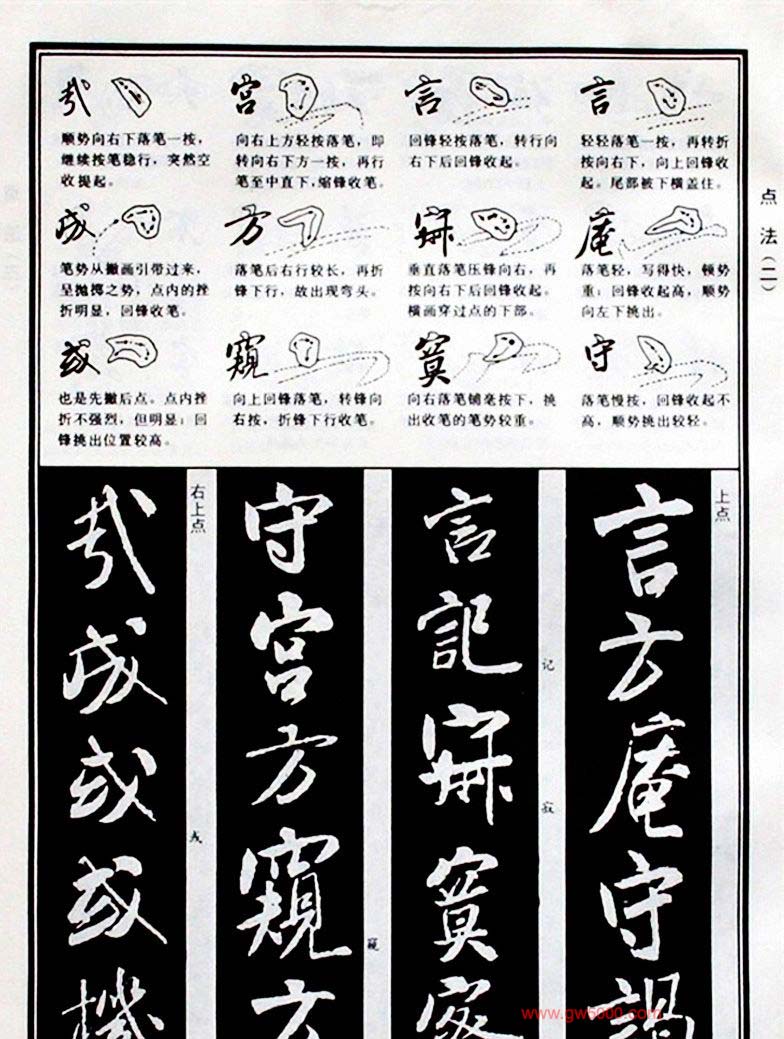 点法(二)
言
轻轻落笔一按,再转折
按向右下,向上回锋收
起。尾部被下横盖住。
庵
落笔轻,写得快,顿势
重;回锋收起高,顺势
向左下挑出。
守
落笔慢按,回锋收起不
高,顺势挑出较轻。
言
回锋轻按落笔,转行向
右下后回锋收起。
寂
垂直落笔压锋向右,再
按向右下后回锋收起。
横画穿过点的下部。
寞
向右落笔铺毫按下,挑
出收笔的笔势较重。
宫
向右上方轻按落笔,即
转向右下方一按,再行
笔至中直下,缩锋收笔。
方
落笔后右行较长,再折
锋下行,故出现弯头。
窥
向上回锋落笔,转锋向
右按,折锋下行收笔。
哉
顺势向右下落笔一按,
继续按笔稳行,突然空
收提起。
成
笔势从撇画引带过来,
呈抛掷之势,点内的挫
折明显,回锋收笔。
或
也是先撇后点。点内挫
折不强烈,但明显;回
锋挑出位置较高。
上点
言方庵守謁
记
寂
言記寂寞密
窥
守宫方窺方
右上点
哉成或或機
www.gw5000.com